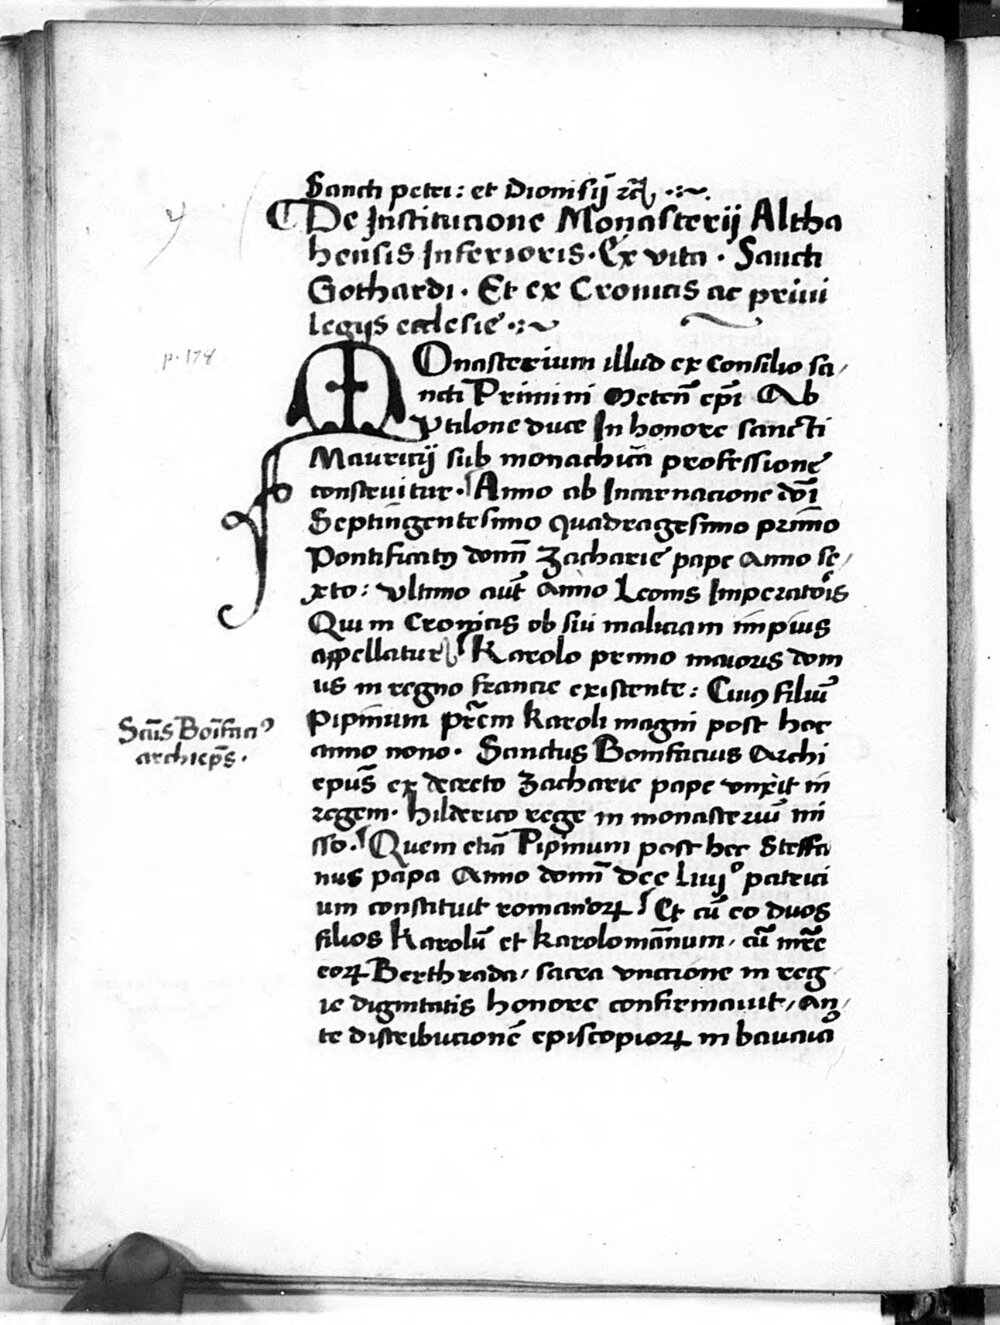 Sancti petri : et Dionisij rc̄
De Institucione Monasterij Altha
hensis Inferioris · Ex vita · Sancti
Gothardi · Et ex Cronicis ac priui
legijs ecclesie
p. 178
Monasterium illud ex consilio sa/
ncti Primini Meteñ ep̄i Ab
Vtilone duce In honore sancti
Mauricij sub monachic̄a professione
construitur · Anno ab Incarnacione dn̄i
Septingentesimo quadragesimo primo
Pontificatꝰ domñ Zacharie pape Anno se/
xto : vltimo aut̄ Anno Leonis Imperatoris
Qui in Cronicis ob sui maliciam impius
appellatur Karolo primo maioris dom
us in regno francie existente : Cuiꝰ filiū
Pipinum pr̄em Karoli magni post hec
anno nono · Sanctus Bonifacius Archi
ep̄us ex decreto Zacharie pape vnxit in
regem · hilderico rege in monasteriū mi
sso · Quem etiā Pipinum post hec Steffa
nus papa Anno domñ Dcc Liiijº patrici
um constituit romanorꝝ Et cū eo duos
filios Karolū et Karolomān̄um / cū mr̄e
eorꝝ Berthrada / sacra vnctione in reg
ie dignitatis honore confirmauit / An/
te distribucionē episcopiorꝝ in bauaria
Sc̄us Bonifaciꝰ
archiep̄s ·